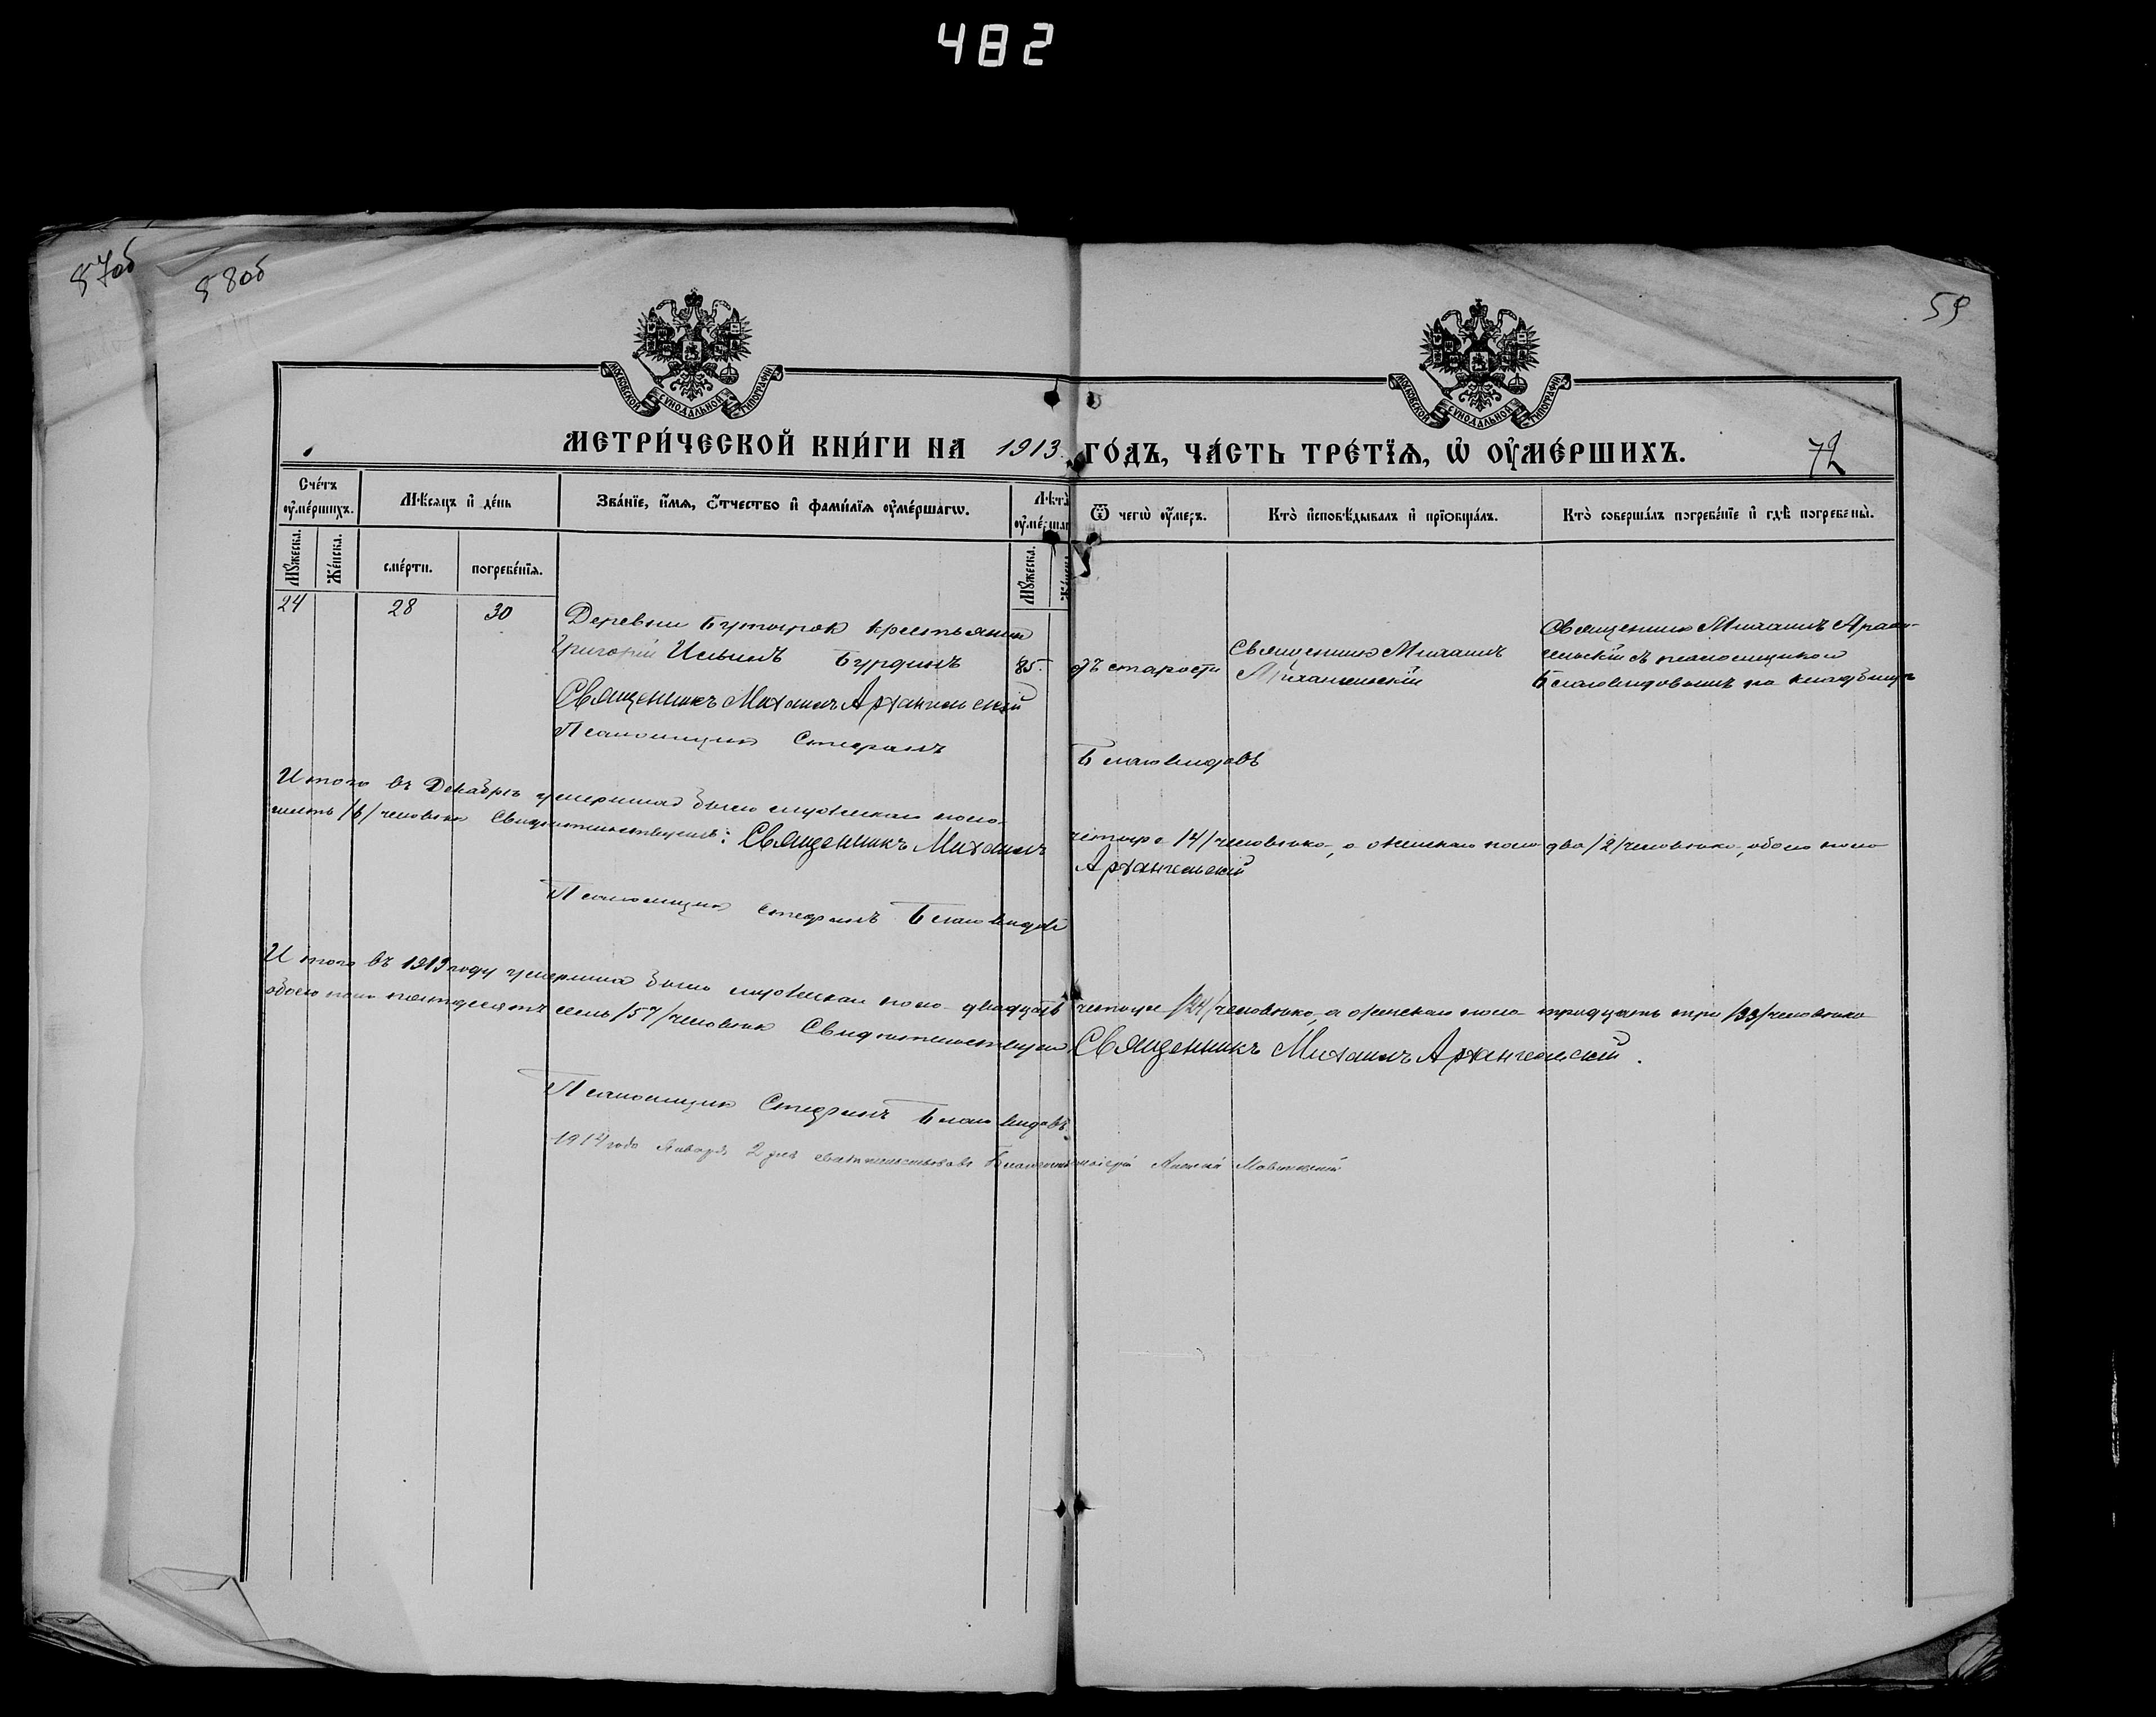 482
57об
58об
59
МОСКОВСКОЙ СѴНОДАЛЬНОЙ ТИПОГРАФІИ
МОСКОВСКОЙ СѴНОДАЛЬНОЙ ТИПОГРАФІИ
МЕТРИ́ЧЕСКОЙ КНИ́ГИ НА 1913 ГО́ДЪ, ЧА́СТЬ ТРЕ́ТЇѦ, Ѡ҆ ОУ҆МЕ́РШИХЪ.
72
Сче́тъ оу҆ме́ршихъ.
Мѣ́сѧцъ и҆ де́нь
Зва́нїе, и҆́мѧ, ѻ҆́тчество и҆ фами́лїѧ оу҆ме́ршагѡ.
Лѣ́та̀ оу҆ме́ршаг
Ѿ чегѡ̀ оу҆́меръ.
Кто̀ и҆сповѣ́дывалъ и҆ прїѡбща́лъ.
Кто̀ соверша́лъ погребе́нїе и҆ гдѣ̀ погребены̀.
Мꙋ́жеска.
Же́нска.
сме́рти.
погребе́нїѧ.
Мꙋ́жеска.
24 28 30 Деревни Бутырок крестьянин
Григорій Ильинъ Бурдинъ 85. отъ старости
Священникъ Михаилъ
Архангельскій
Священникъ Михаилъ Архан-
гельскій съ псаломщиком
Благовидовымъ на кладбищѣ
Священникъ Михаилъ Архангельскій
Псаломщикъ Стефанъ Благовидовъ
Итого въ Декабрѣ умерших было мужеска пола четыре /4/ человѣка, а женскаго пола два /2/ человѣка, обоего пола
шесть /6/ человѣкъ Свидѣтельствуемъ: Священникъ Михаилъ Архангельскій
Псаломщикъ Стефанъ Благовидовъ
Итого въ 1913 году умершихъ было мужескаго пола двадцать четыре /24/ человѣка, а женскаго пола тридцать три /33/ человѣка
обоего пола пятьдесятъ семь /57/ человѣк Свидѣтельствуемъ Священникъ Михаилъ Архангельскій.
Псаломщикъ Стефанъ Благовидовъ.
1914 года Января 2 дня свидѣтельствовалъ Благочинный іерей Алексій